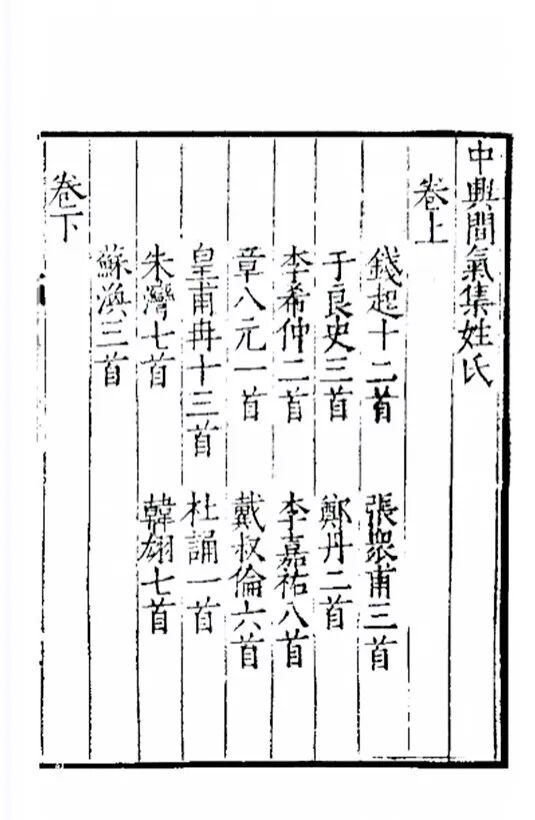 中興間氣集姓氏
卷上
錢起十二首　張衆甫三首
于良史三首　鄭丹二首
李希仲二首　李嘉祐八首
章八元一首　戴叔倫六首
皇甫冉十三首　杜誦一首
朱灣七首　韓翃七首
蘇渙三首
卷下